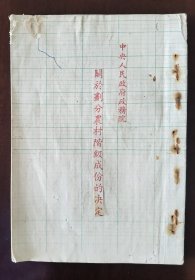 中央人民政府政務院
關於劃分農村階級成份的决定